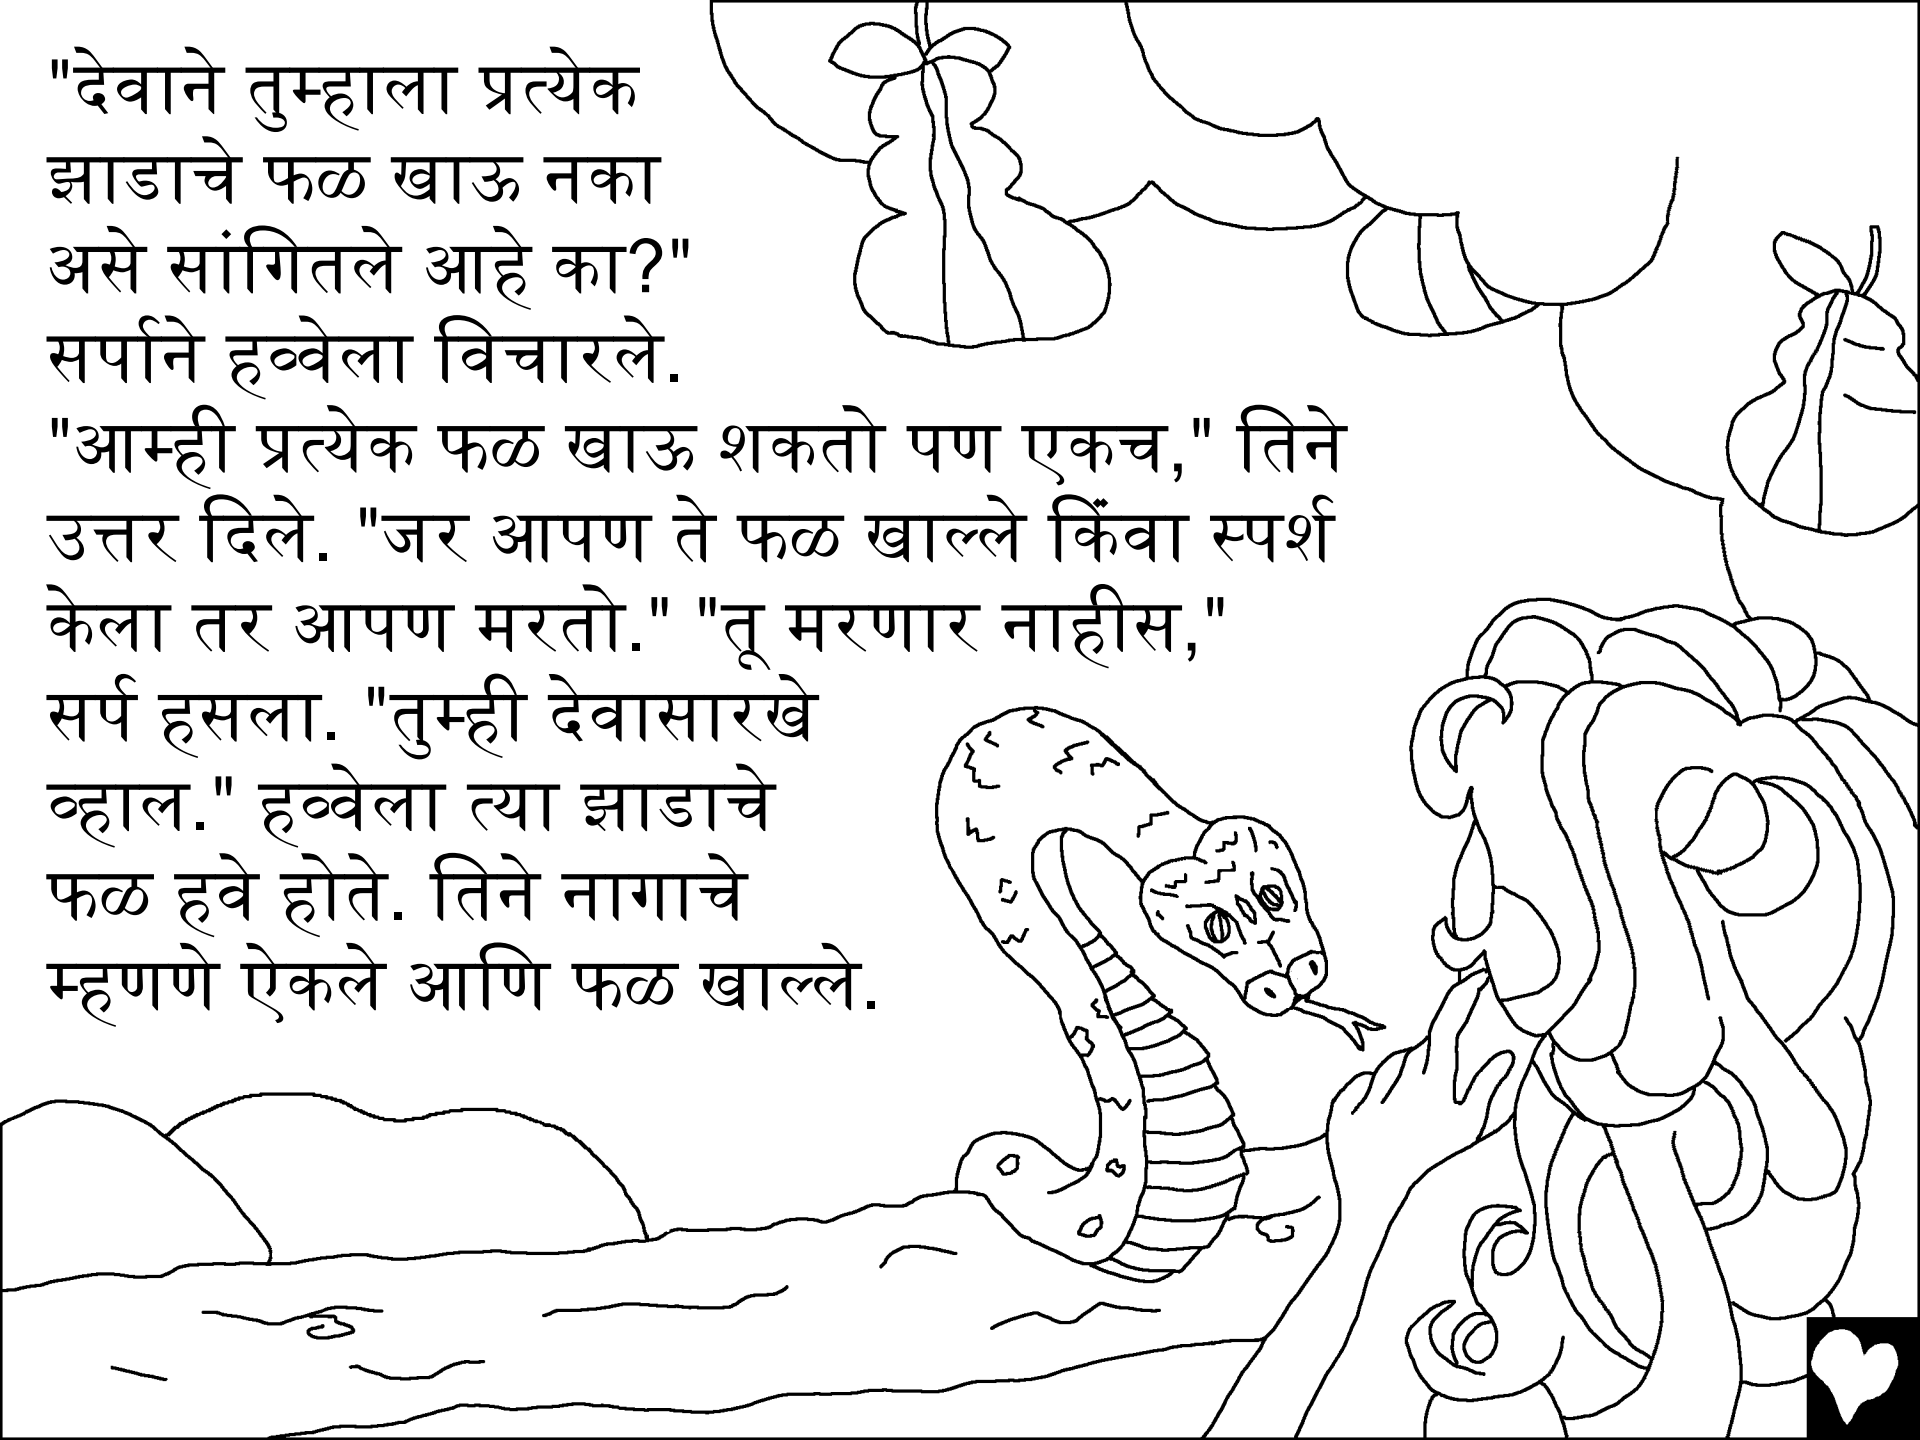 "देवाने तुम्हाला प्रत्येक
झाडाचे फळ खाऊ नका
असे सांगितले आहे का?"
सर्पाने हव्वेला विचारले.
"आम्ही प्रत्येक फळ खाऊ शकतो पण एकच," तिने
उत्तर दिले. "जर आपण ते फळ खाल्ले किंवा स्पर्श
केला तर आपण मरतो." "तू मरणार नाहीस,"
सर्प हसला. "तुम्ही देवासारखे
व्हाल." हव्वेला त्या झाडाचे
फळ हवे होते. तिने नागाचे
म्हणणे ऐकले आणि फळ खाल्ले.